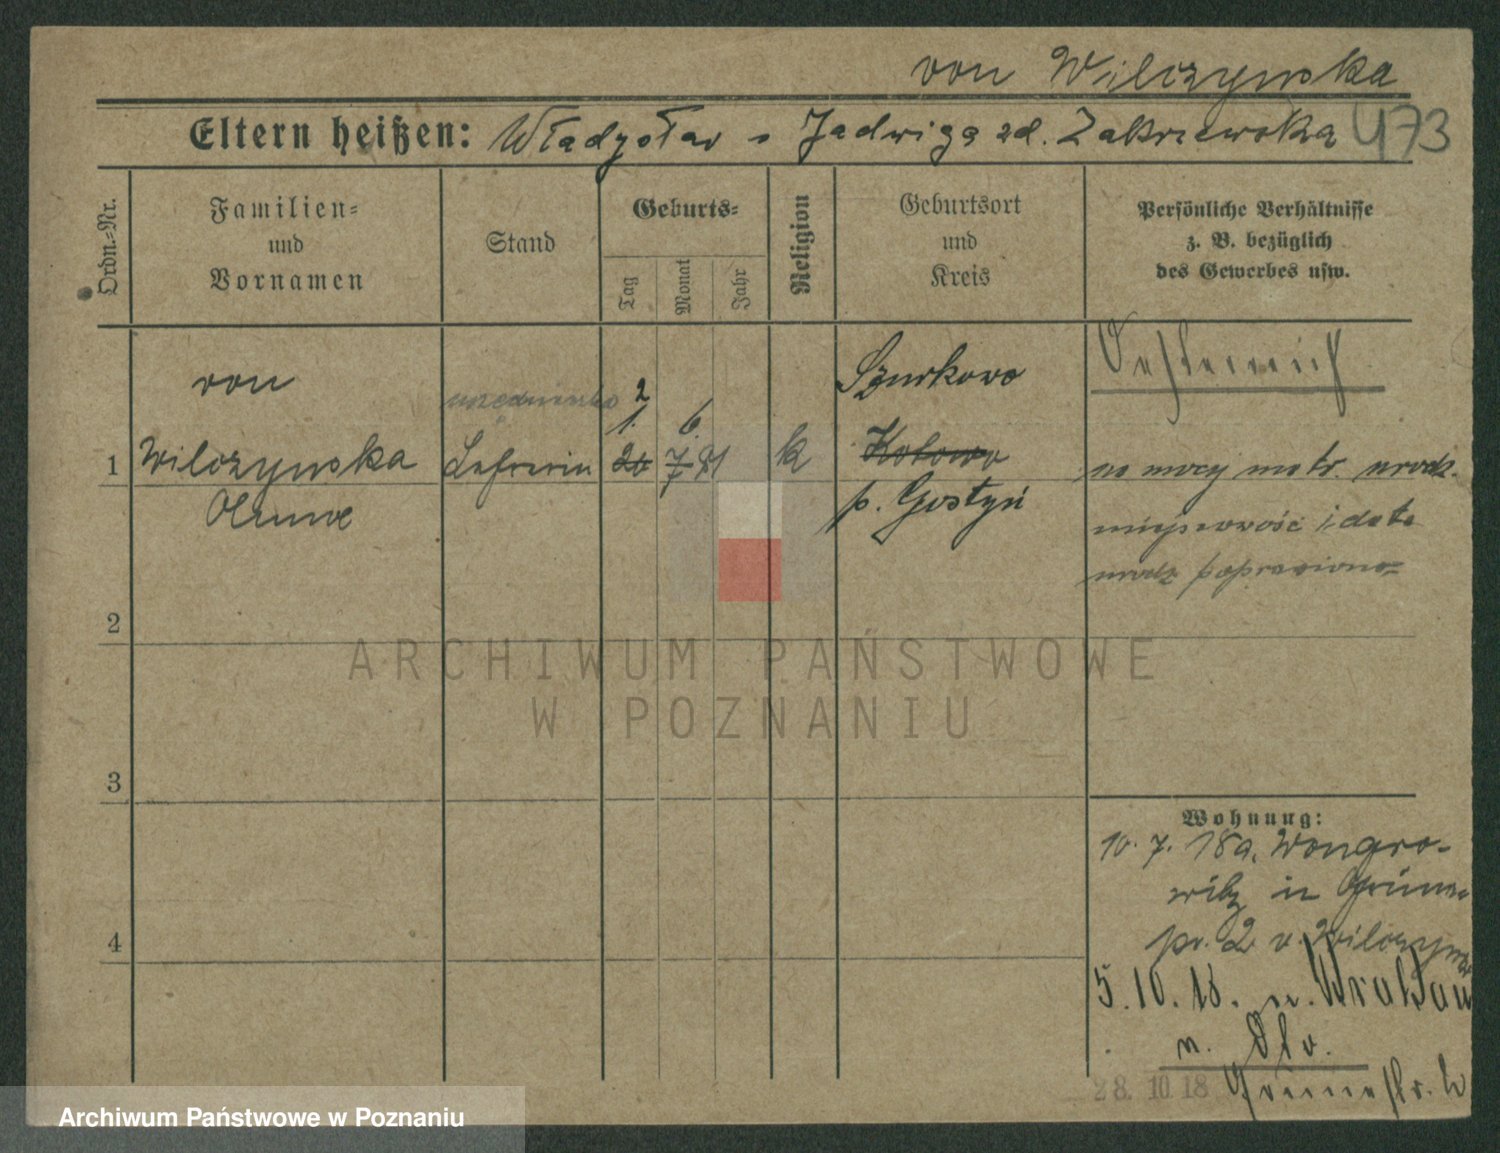 von Wilczynska
Eltern heißen: Władysław s Jadwiga zd. Zakrzewska 473
Ordn.-Nr.
Familien-
und
Vornamen
Stand
Geburts-
Tag
Monat
Jahr
Religion
Geburtsort
und
Kreis
Persönliche Verhältnisse
z. B. bezüglich
des Gewerbes usw.
Oesterreich
von
Szurkowo
2
1. 6.
1 Wilczynska Lehrerin 20 7. 81 k Kotowo
na mocy metr. urodz.
p. Gostyń
miejscowość i data
urodz poprawiono
2
3
4
Wohnung:
10. 7. 18 a. Wongro-
witz in
pr. 2 v. Wilczynska
5. 10. 18. n.
n.
28. 10 18
ARCHIWUM PAŃSTWOWE
W POZNANIU
Archiwum Państwowe w Poznaniu